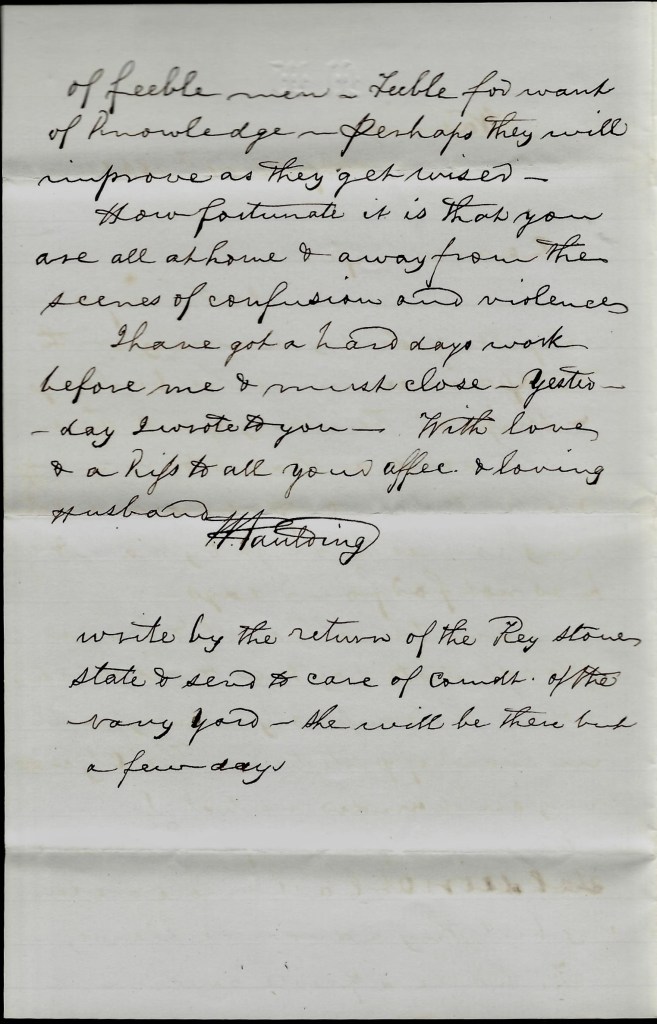 of feeble men – Feeble for want
of Knowledge – Perhaps they will
improve as they get wiser –
How fortunate it is that you
are all at home & away from the
scenes of confusion and violence
I have got a hard days work
before me & must close – Yester-
-day I wrote to you – With love
& a kiss to all your affec. & loving
Husband
H. Paulding
write by the return of the Key stone
state & send to care of Comdt. of the
navy yard – she will be there but
a few days